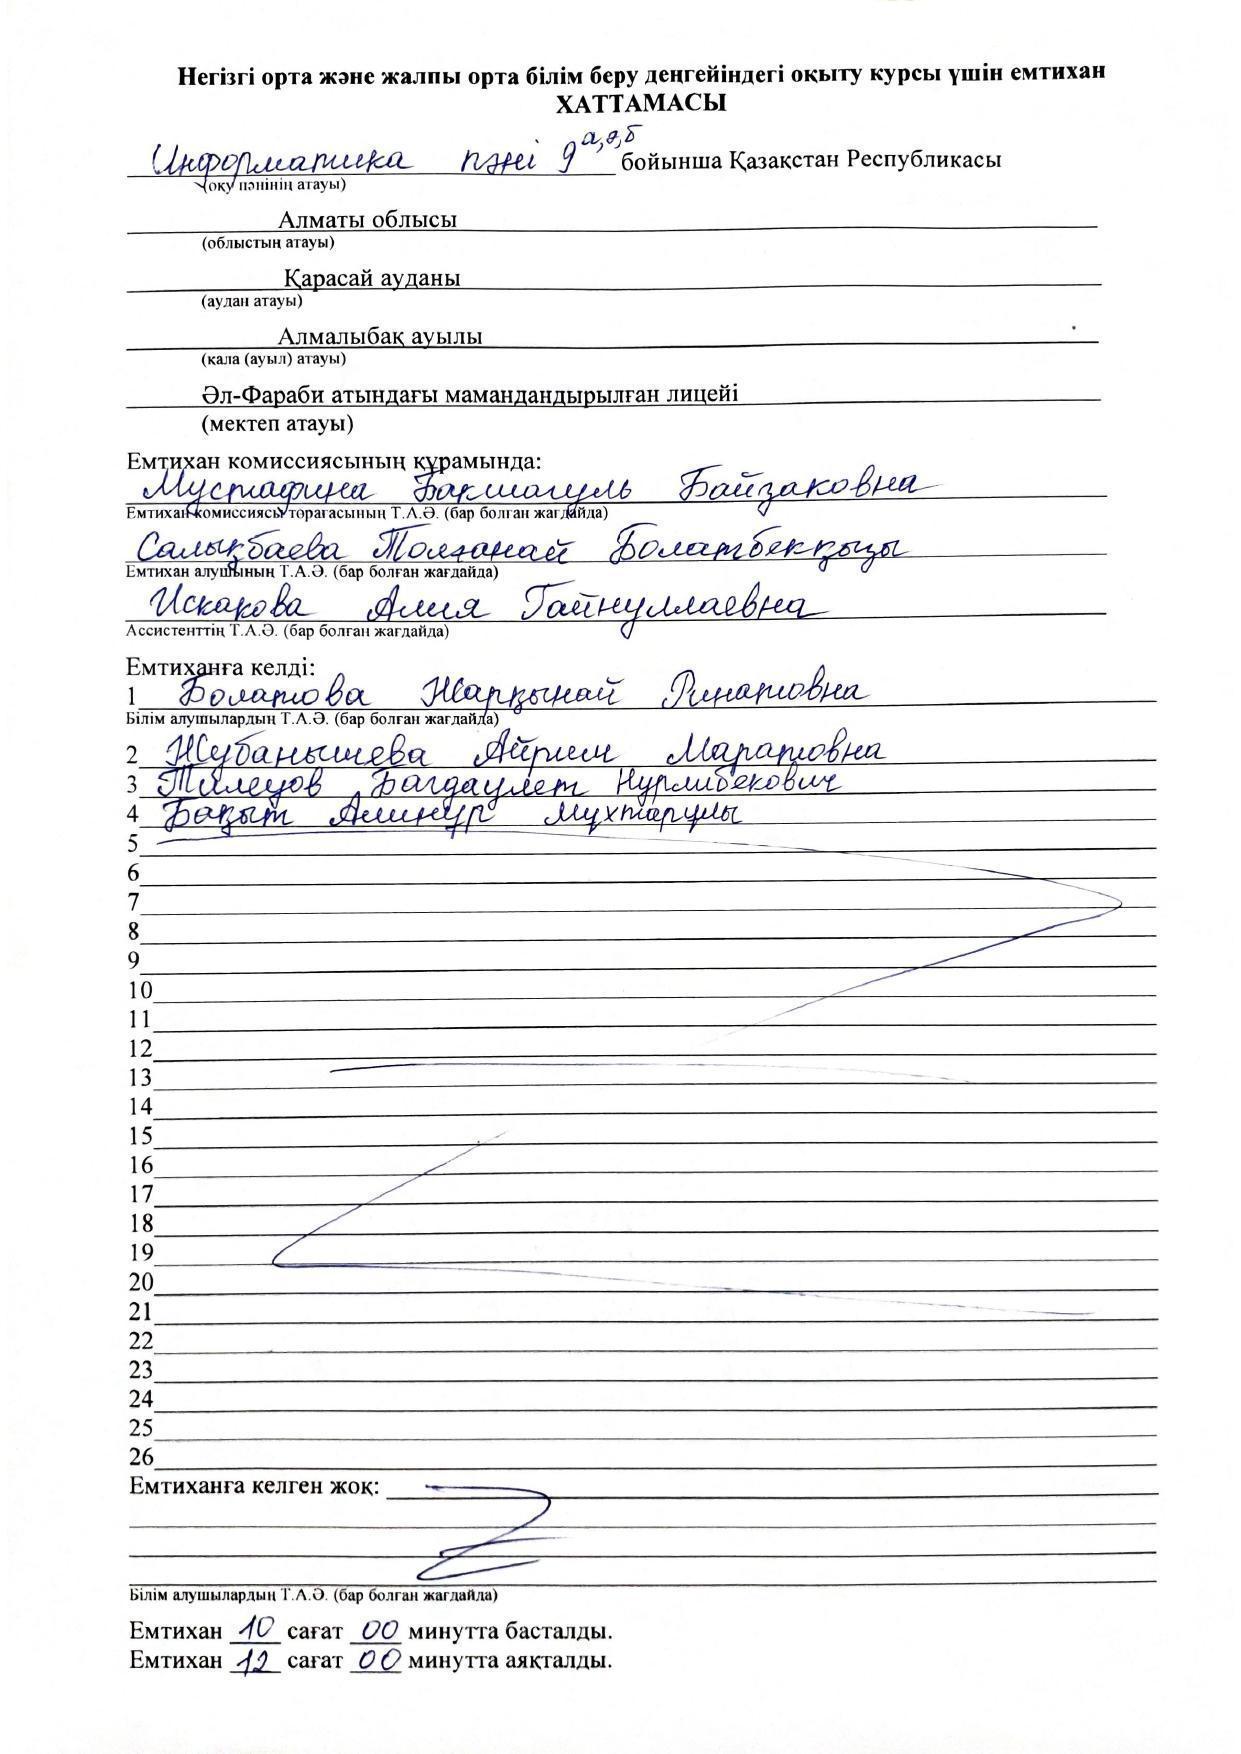 Негізгі орта және жалпы орта білім беру деңгейіндегі оқыту курсы үшін емтихан
ХАТТАМАСЫ
Информатика пәні 9 а,ә,б бойынша Қазақстан Республикасы
(оқу пәнінің атауы)
Алматы облысы
(облыстың атауы)
Қарасай ауданы
(аудан атауы)
Алмалыбақ ауылы
(кала (ауыл) атауы)
Әл-Фараби атындағы мамандандырылған лицейі
(мектеп атауы)
Емтихан комиссиясының құрамында:
Мустафина Бакшагуль Байзаковна
Емтихан комиссиясы төрағасының Т.А.Ә. (бар болған жағдайда)
Салықбаева Толғанай Болатбекқызы
Емтихан алушының Т.А.Ә. (бар болған жағдайда)
Искакова Алия Гайнуллаевна
Ассистенттің Т.А.Ә. (бар болған жағдайда)
Емтиханға келді:
1 Болатова Жарқынай Ринатовна
Білім алушылардың Т.А.Ә. (бар болған жағдайда)
2 Жубанышева Айрим Маратовна
3 Тилеуов Багдаулет Нурлибекович
4 Бақыт Алинұр Мұхтарұлы
5
6
7
8
9
10
11
12
13
14
15
16
17
18
19
20
21
22
23
24
25
26
Емтиханға келген жоқ:
Білім алушылардың Т.А.Ә. (бар болған жағдайда)
Емтихан 10 сағат 00 минутта басталды.
Емтихан 12 сағат 00 минутта аяқталды.